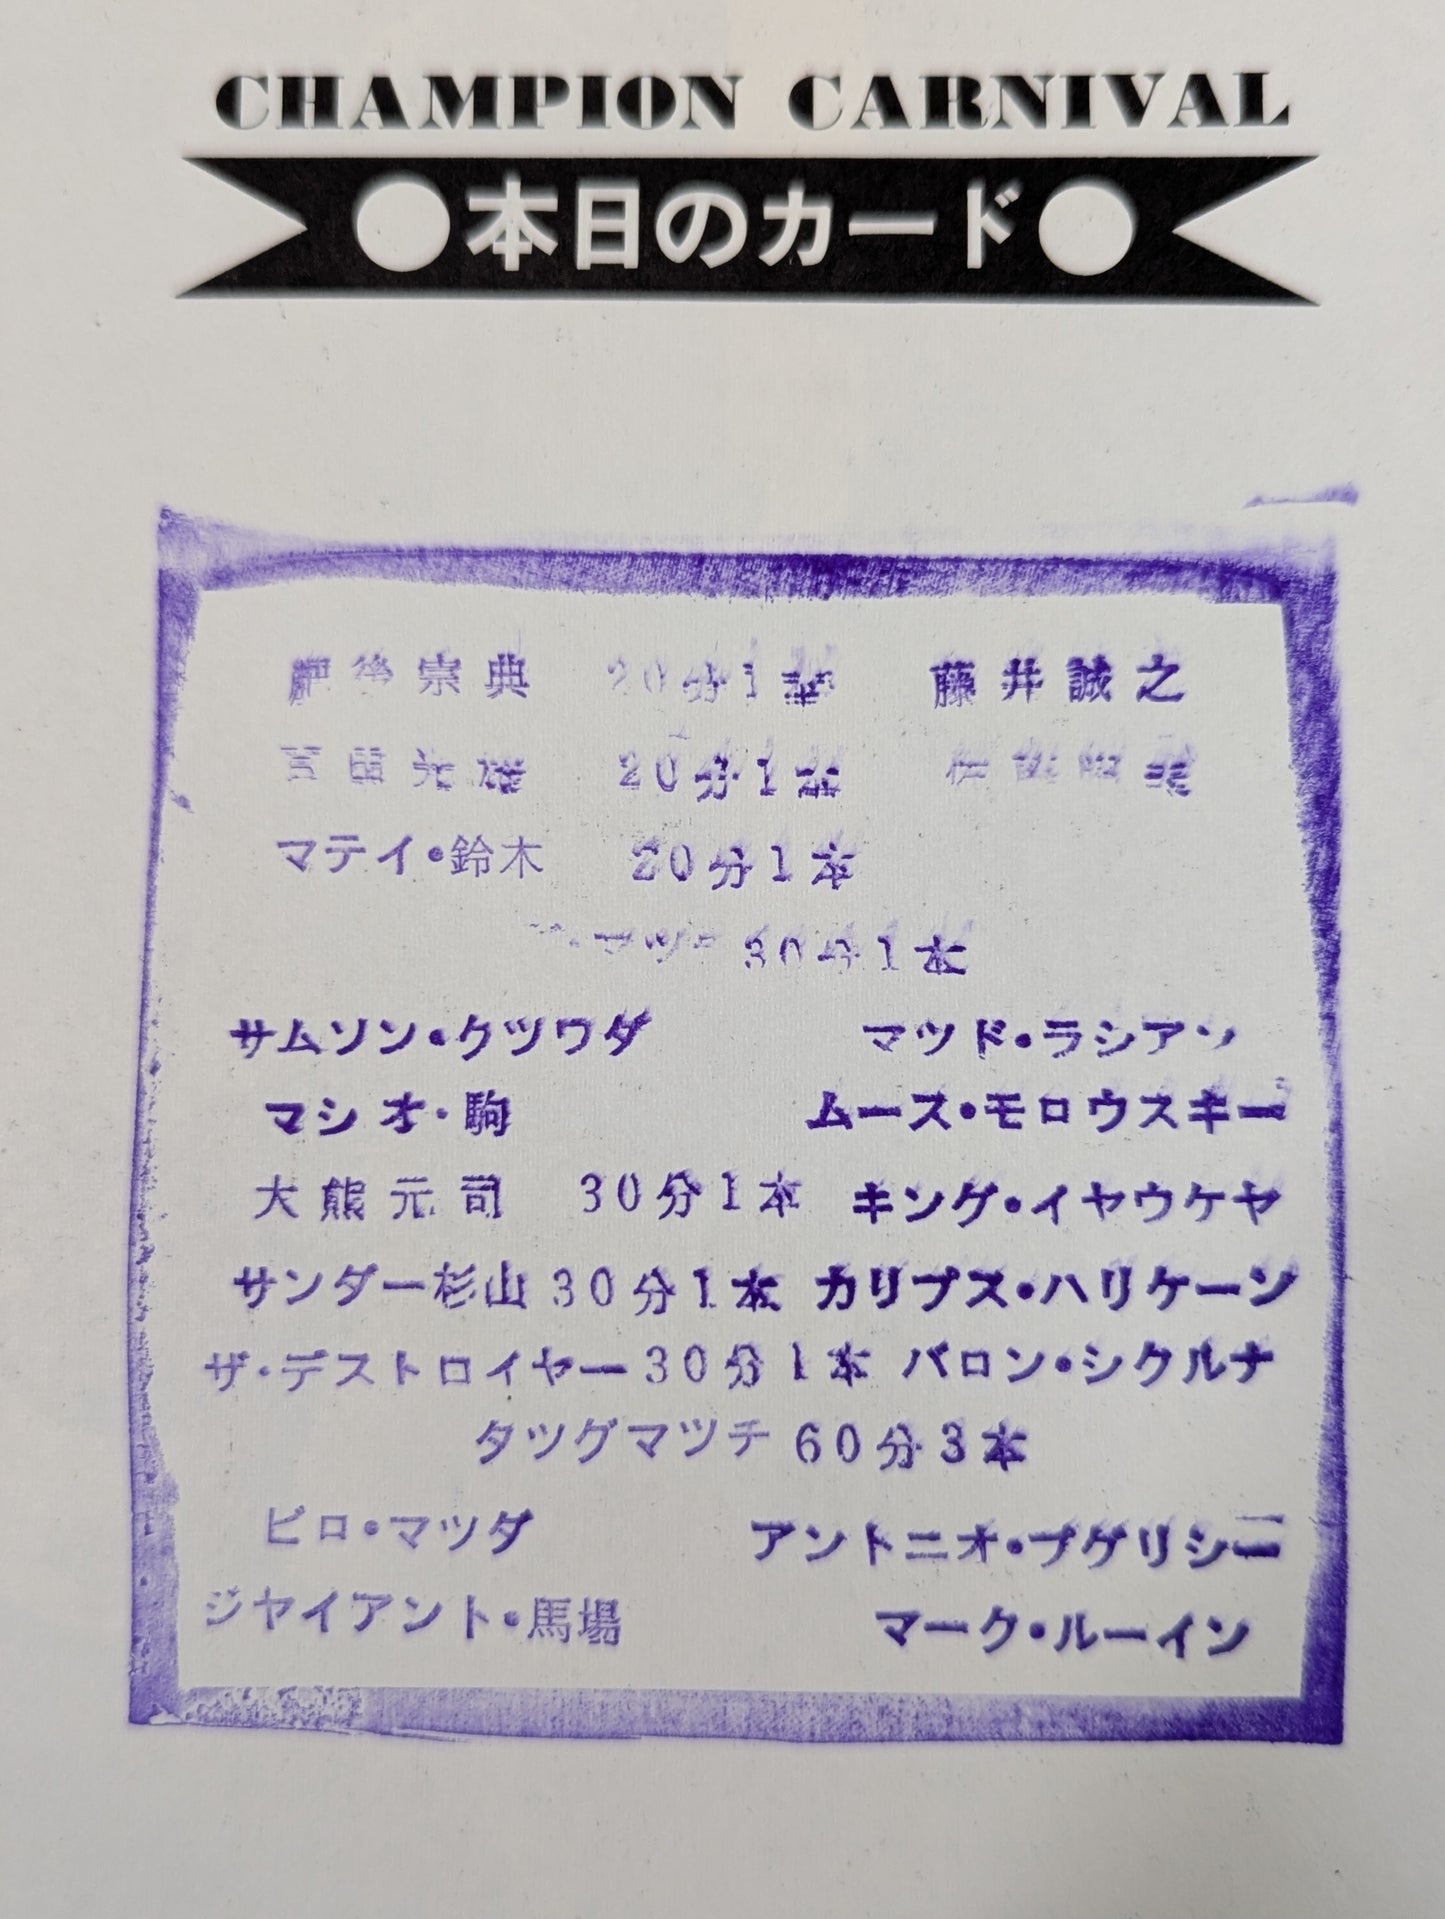 CHAMPION CARNIVAL
●本日のカード●
肥後宗典 20分1本 藤井誠之
百田光雄 20分1本
マテイ・鈴木 20分1本
30分1本
サムソン・クツワダ マツド・ラシアン
マシオ・駒 ムース・モロウスキー
大熊元司 30分1本 キング・イヤウケヤ
サンダー杉山 30分1本 カリプス・ハリケーン
ザ・デストロイヤー 30分1本 バロン・シクルナ
タツグマツチ 60分3本
ヒロ・マツダ アントニオ・プグリシー
ジヤイアント・馬場 マーク・ルーイン